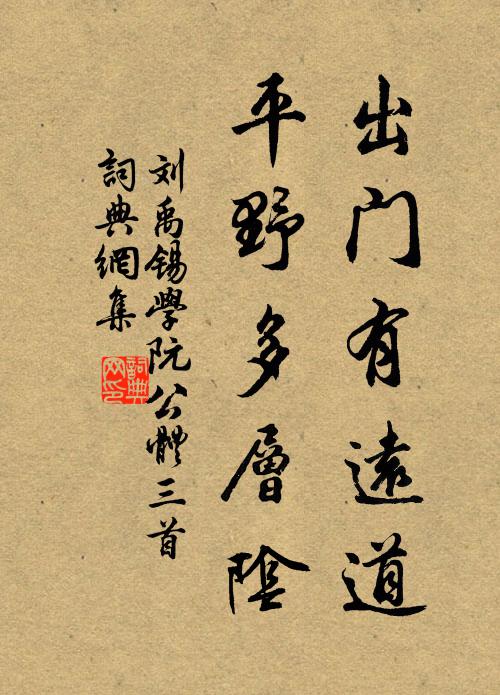 出门有遠道
平野多層陰
刘禹锡學阮公體三首
詞典網集
詞典网印